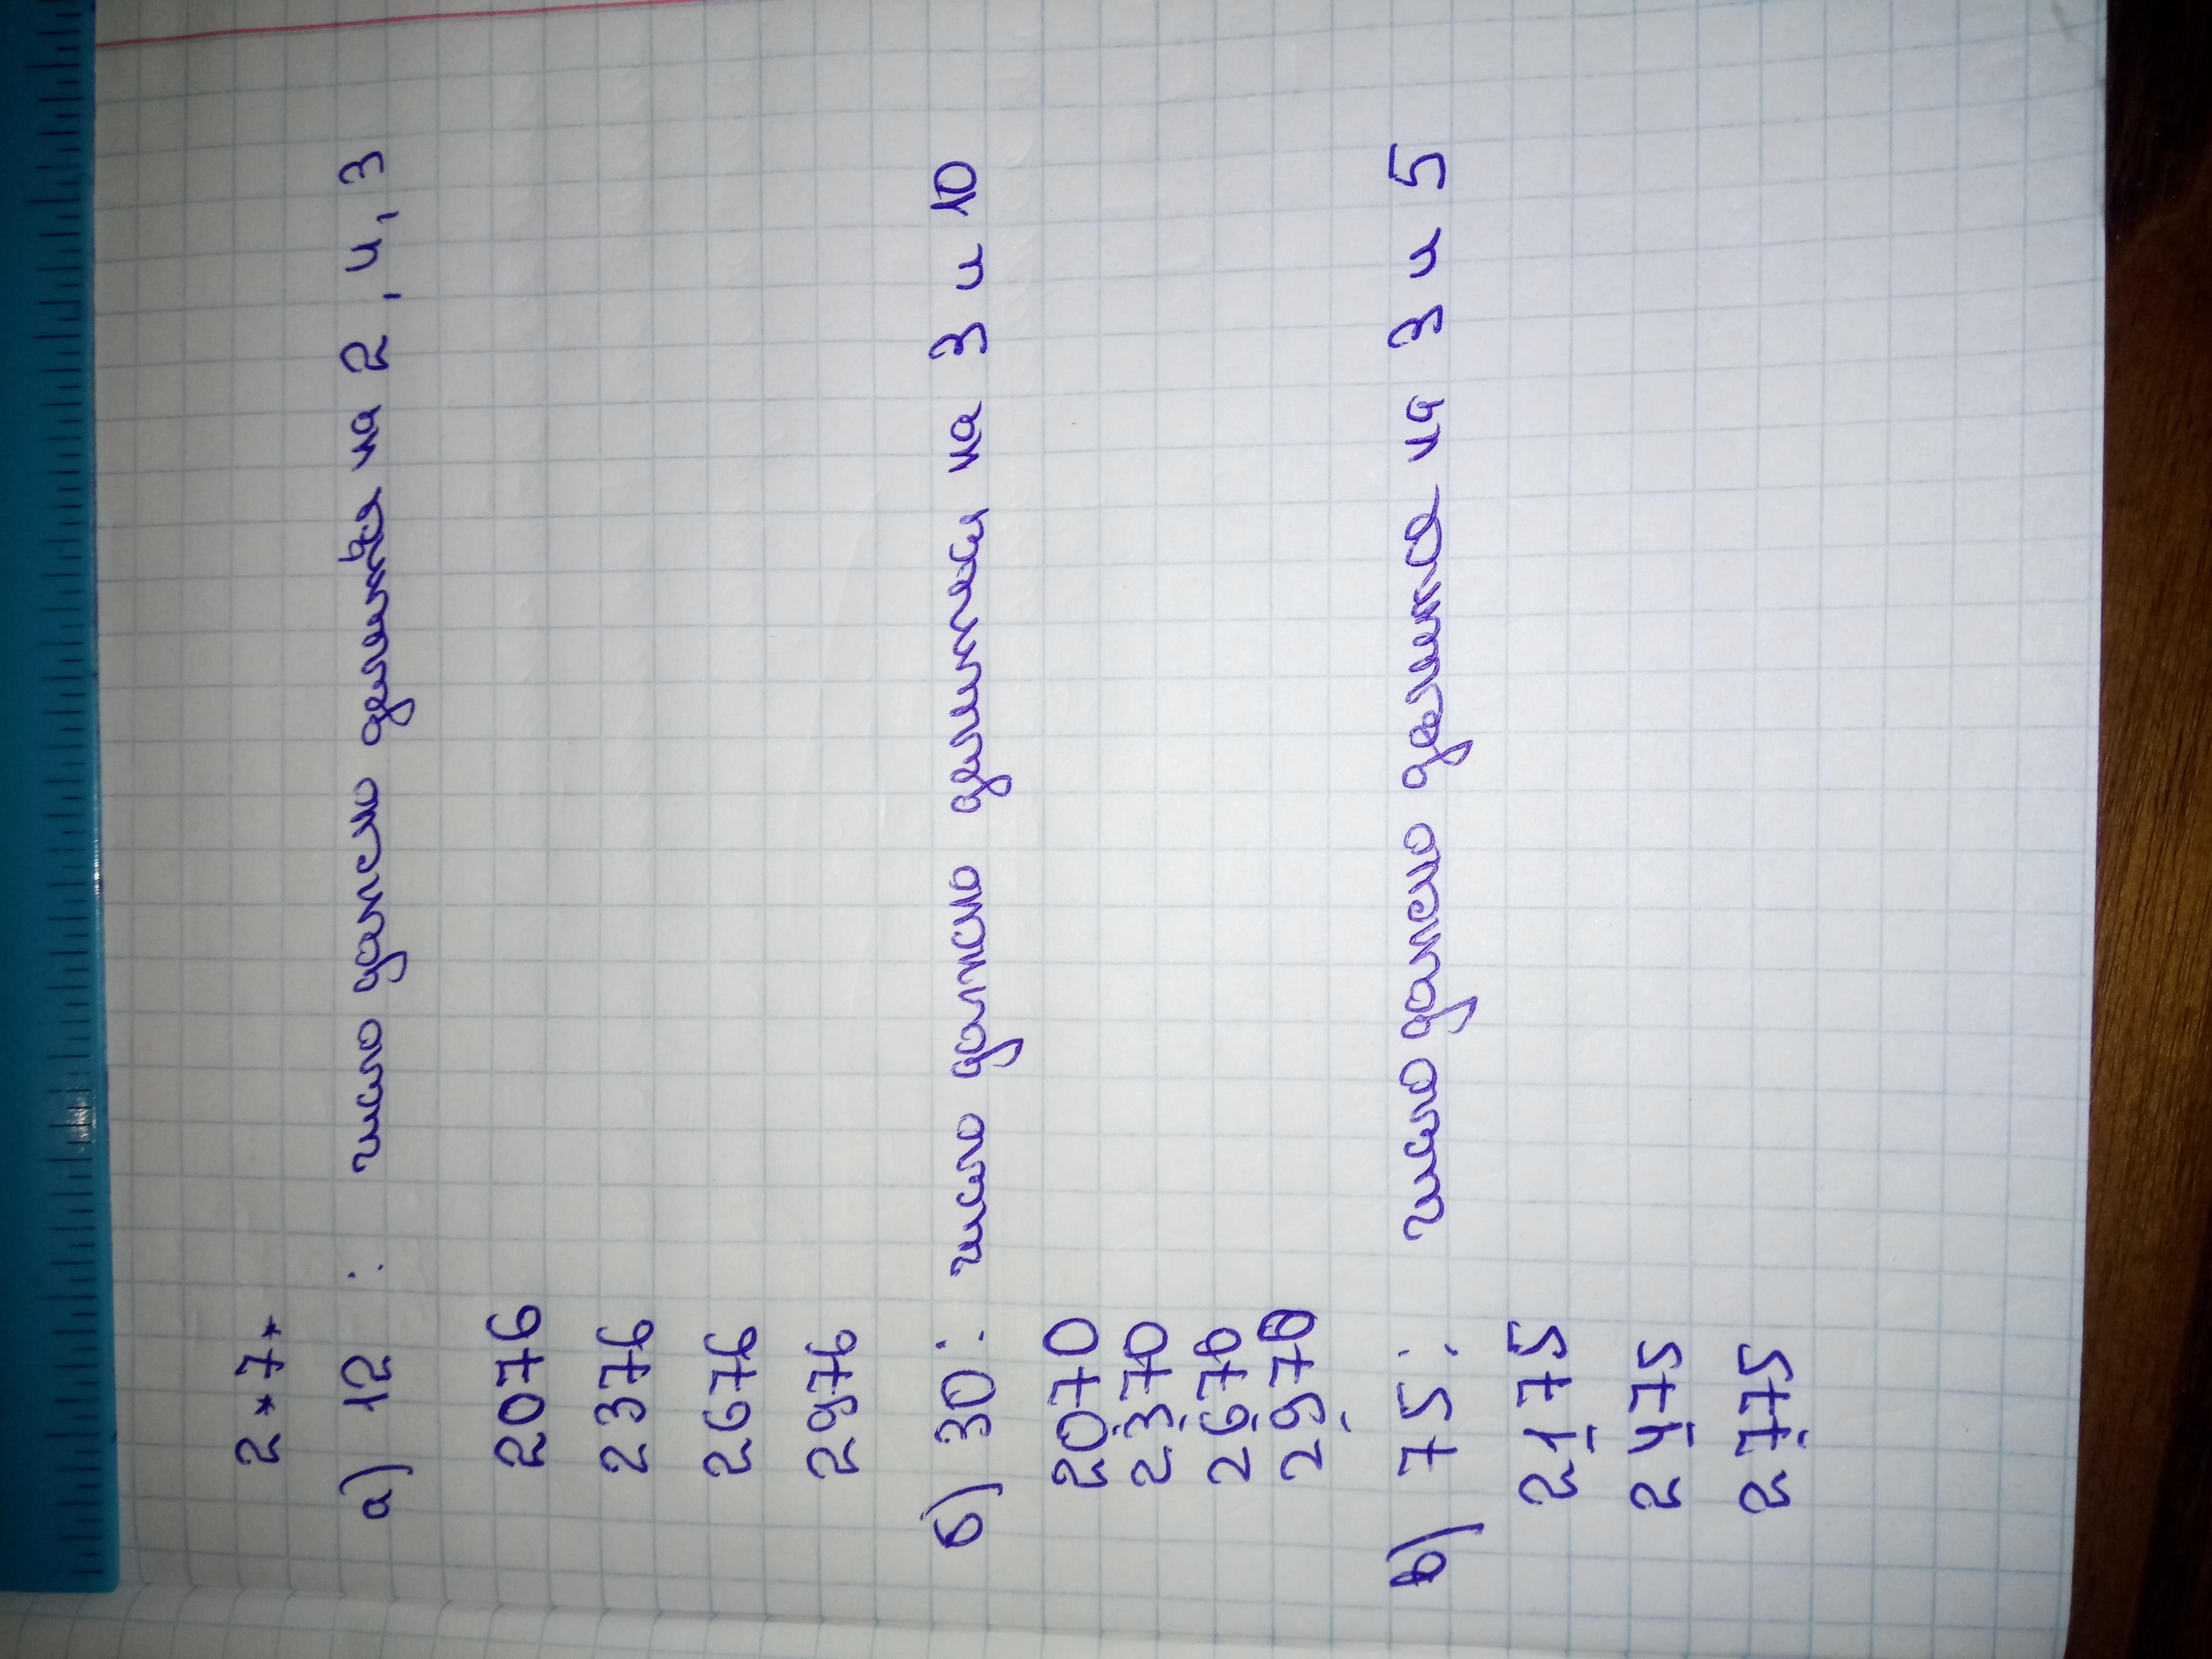 2*7*
а) 12: число должно делиться на 2, и, 3
2076
2376
2676
2976
б) 30: число должно делиться на 3 и 10
2070
2370
2670
2970
в) 75: число должно делиться на 3 и 5
2175
2475
2775